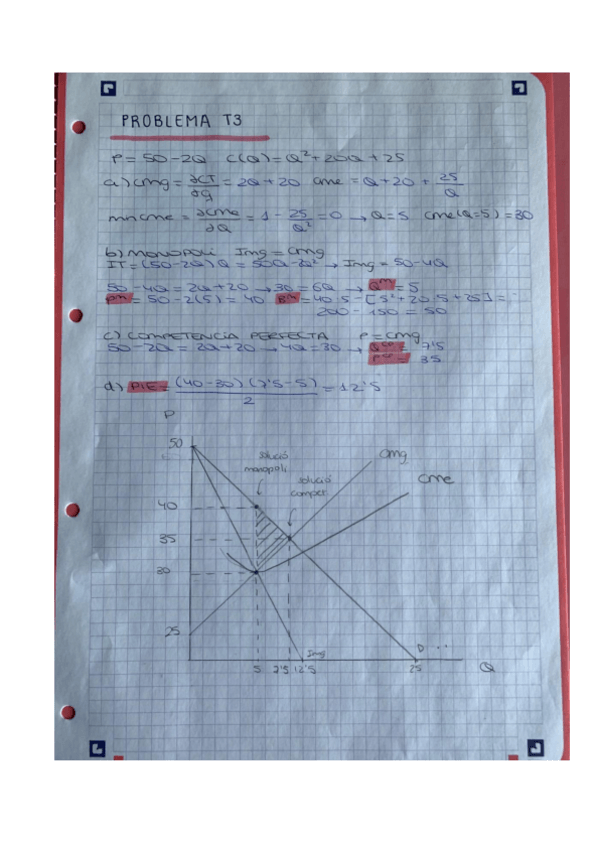 PROBLEMA T3
P = 50-2Q C(Q) = Q² + 20Q + 25
a) Cmg = ∂CT/∂q = 2Q + 20 Cme = Q + 20 + 25/Q
min cme = ∂Cme/∂Q = 1 - 25/Q² = 0 → Q = 5 Cme(Q=5) = 30
b) MONOPOLI Img = Cmg
IT = (50-2Q)Q = 50Q-2Q² → Img = 50-4Q
50-4Q = 2Q+20 → 30 = 6Q → Qᵐ = 5
Pᵐ = 50-2(5) = 40 Bᵐ = 40·5 - [5² + 20·5 + 25] =
200 - 150 = 50
c) COMPETENCIA PERFECTA P = Cmg
50-2Q = 2Q+20 → 4Q = 30 → Qᶜᵖ = 7'5
Pᶜᵖ = 35
d) PIE = (40-30)(7'5-5)/2 = 12'5
P
50
solució
monopoli
solució
compet.
Cmg
Cme
40
35
30
25
Img
D
5 7'5 12'5 25 Q